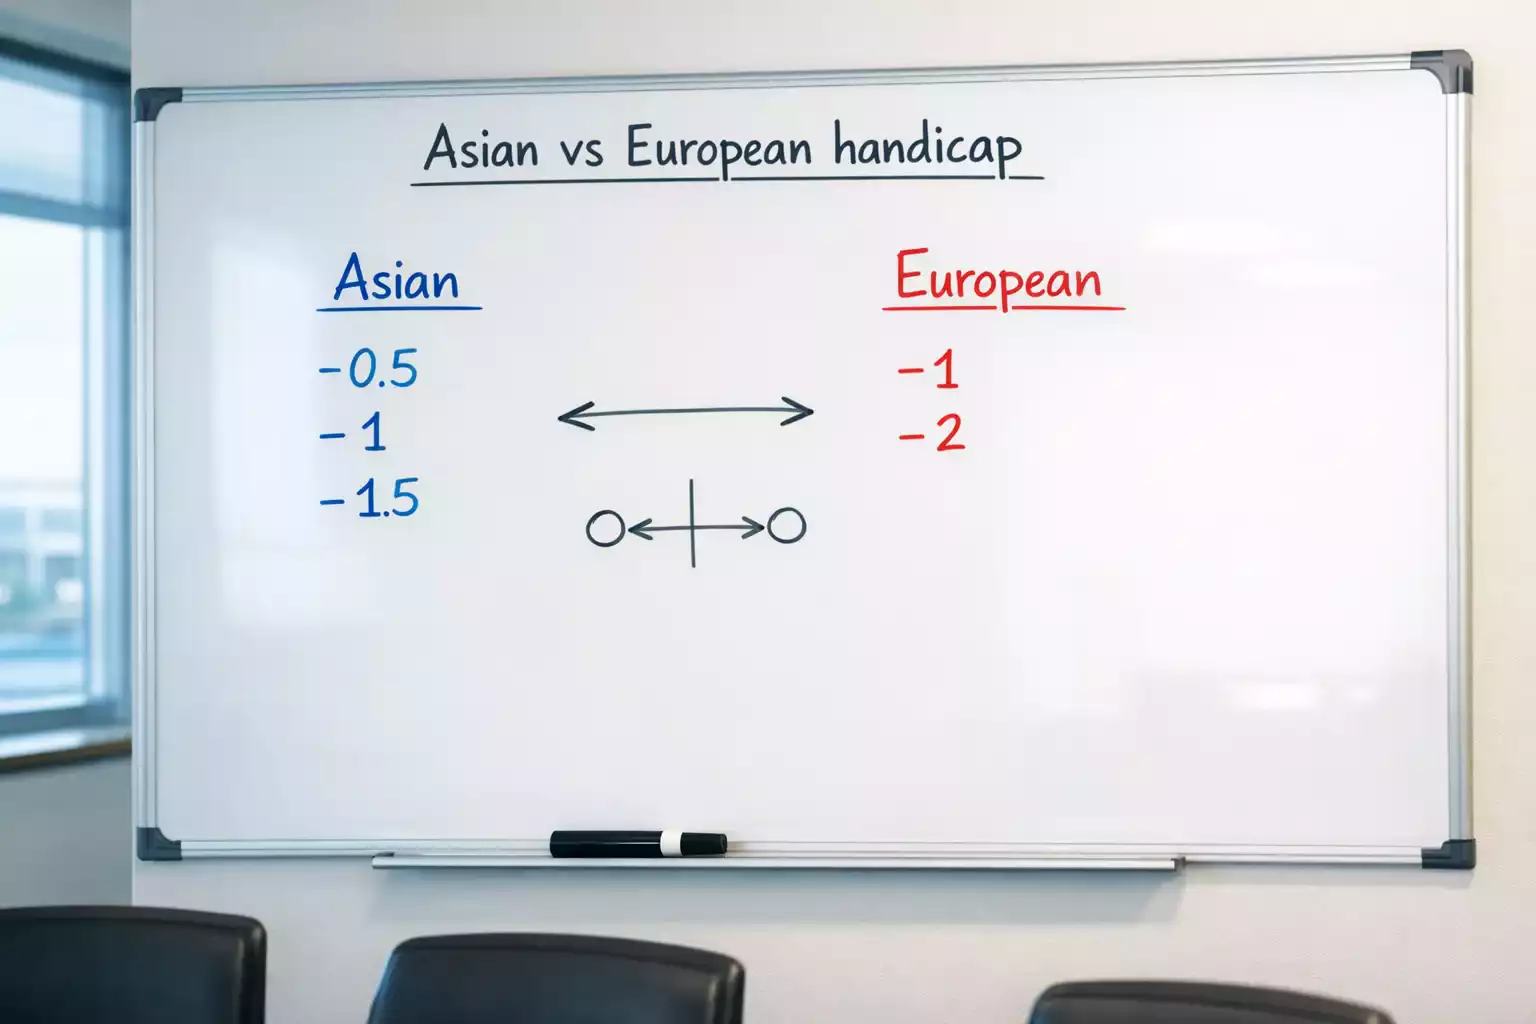 Asian vs European handicap
Asian
-0.5
-1
-1.5
European
-1
-2